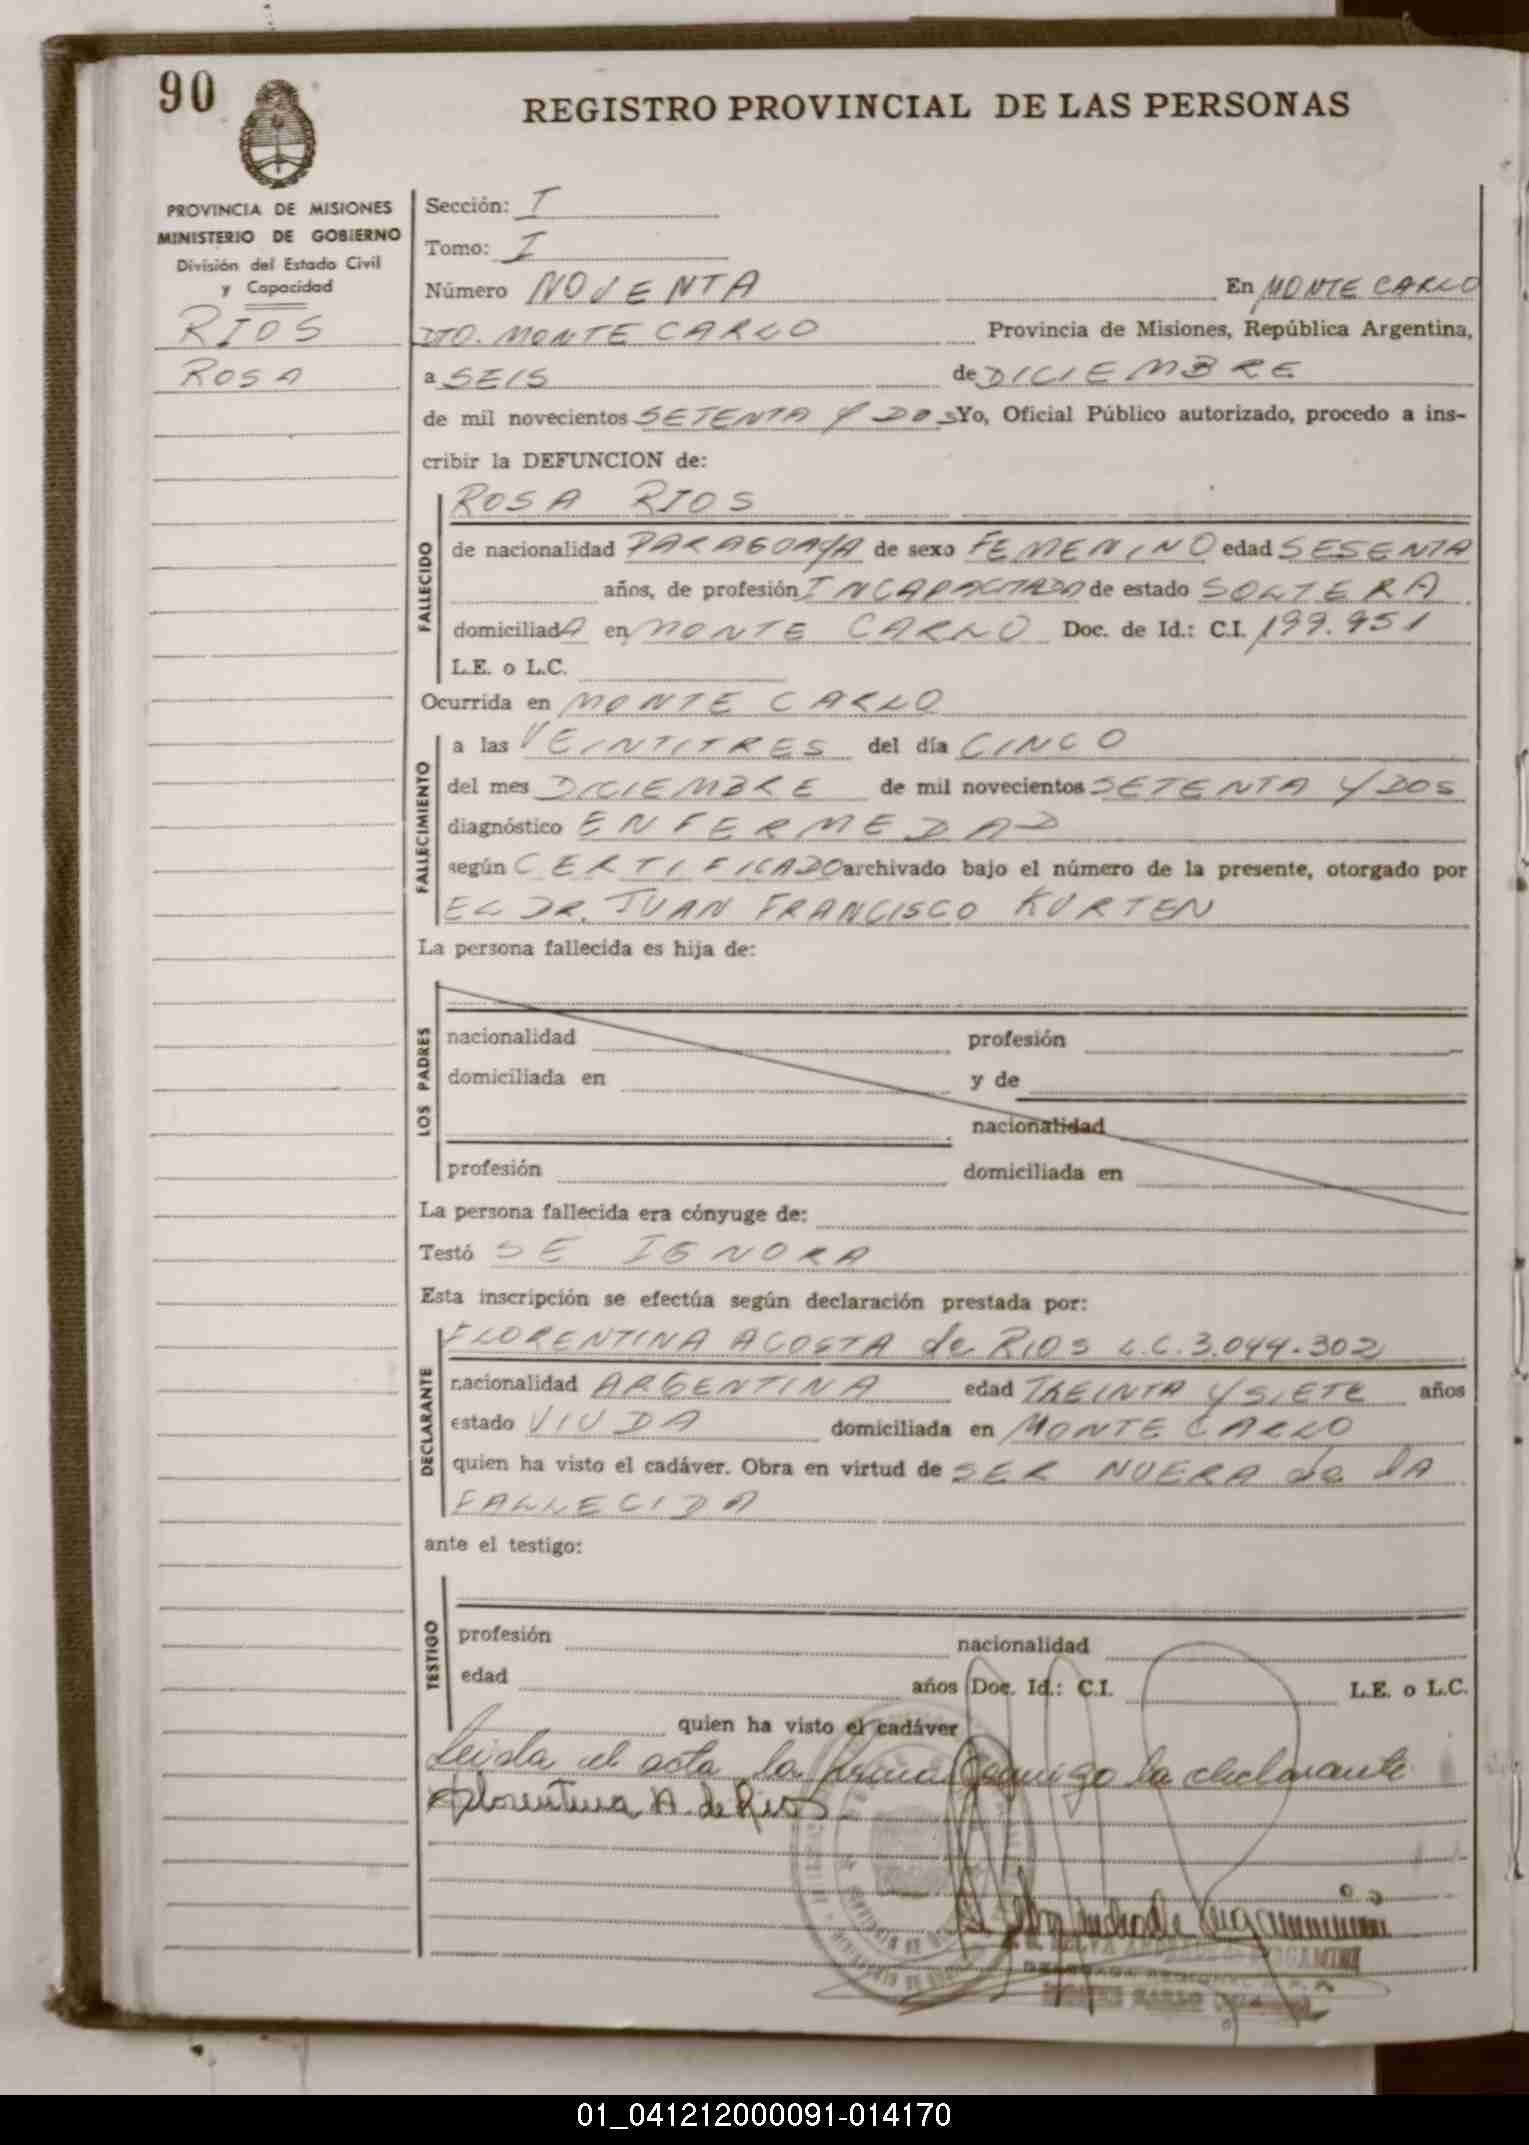 90
REGISTRO PROVINCIAL DE LAS PERSONAS
PROVINCIA DE MISIONES
MINISTERIO DE GOBIERNO
División del Estado Civil
y Capacidad
RIOS
ROSA
Sección: I
Tomo: I
Número NOVENTA En MONTE CARLO
DTO. MONTE CARLO Provincia de Misiones, República Argentina,
a SEIS de DICIEMBRE
de mil novecientos SETENTA Y DOS Yo, Oficial Público autorizado, procedo a ins-
cribir la DEFUNCION de:
ROSA RIOS
FALLECIDO
de nacionalidad PARAGUAYA de sexo FEMENINO edad SESENTA
años, de profesión INCAPACITADA de estado SOLTERA
domiciliadA en MONTE CARLO Doc. de Id.: C.I. 199.951
L.E. o L.C.
Ocurrida en MONTE CARLO
FALLECIMIENTO
a las VEINTITRES del día CINCO
del mes DICIEMBRE de mil novecientos SETENTA Y DOS
diagnóstico ENFERMEDAD
según CERTIFICADO archivado bajo el número de la presente, otorgado por
EL DR. JUAN FRANCISCO KURTEN
La persona fallecida es hija de:
LOS PADRES
nacionalidad profesión
domiciliada en y de
nacionalidad
profesión domiciliada en
La persona fallecida era cónyuge de:
Testó SE IGNORA
Esta inscripción se efectúa según declaración prestada por:
DECLARANTE
FLORENTINA ACOSTA de RIOS L.C. 3.044.302
nacionalidad ARGENTINA edad TREINTA Y SIETE años
estado VIUDA domiciliada en MONTE CARLO
quien ha visto el cadáver. Obra en virtud de SER NUERA de lA
FALLECIDA
ante el testigo:
TESTIGO
profesión nacionalidad
edad años Doc. Id.: C.I. L.E. o L.C.
quien ha visto el cadáver
Leida el acta la firma conmigo la declarante
Florentina A. de Rios
01_041212000091-014170